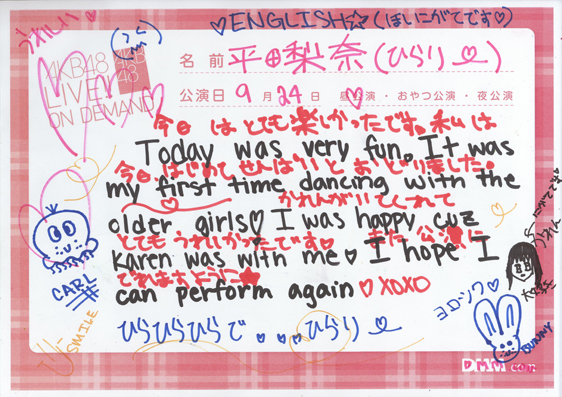 ♡ENGLISH☆(ほいこがてです♡)
うれしい
AKB48
LIVE!!
ON DEMAND
AKB
48
名前 平田梨奈(ひらり)
公演日 9月24日 昼公演・おやつ公演・夜公演
今日 はとても楽しかったです。私は
Today was very fun. It was
今日はじめてせんぱいとおどりました。
my first time dancing with the
かれんがいてくれて
older girls♡ I was happy cuz
とてもうれしかったです♡ また公演に
Karen was with me♡ I hope I
でれますように★
can perform again♡XOXO
ひらひらひらで ♥♥♥ひらり
CARL
SMILE
ヨロシク♡
BUNNY
DMM.com